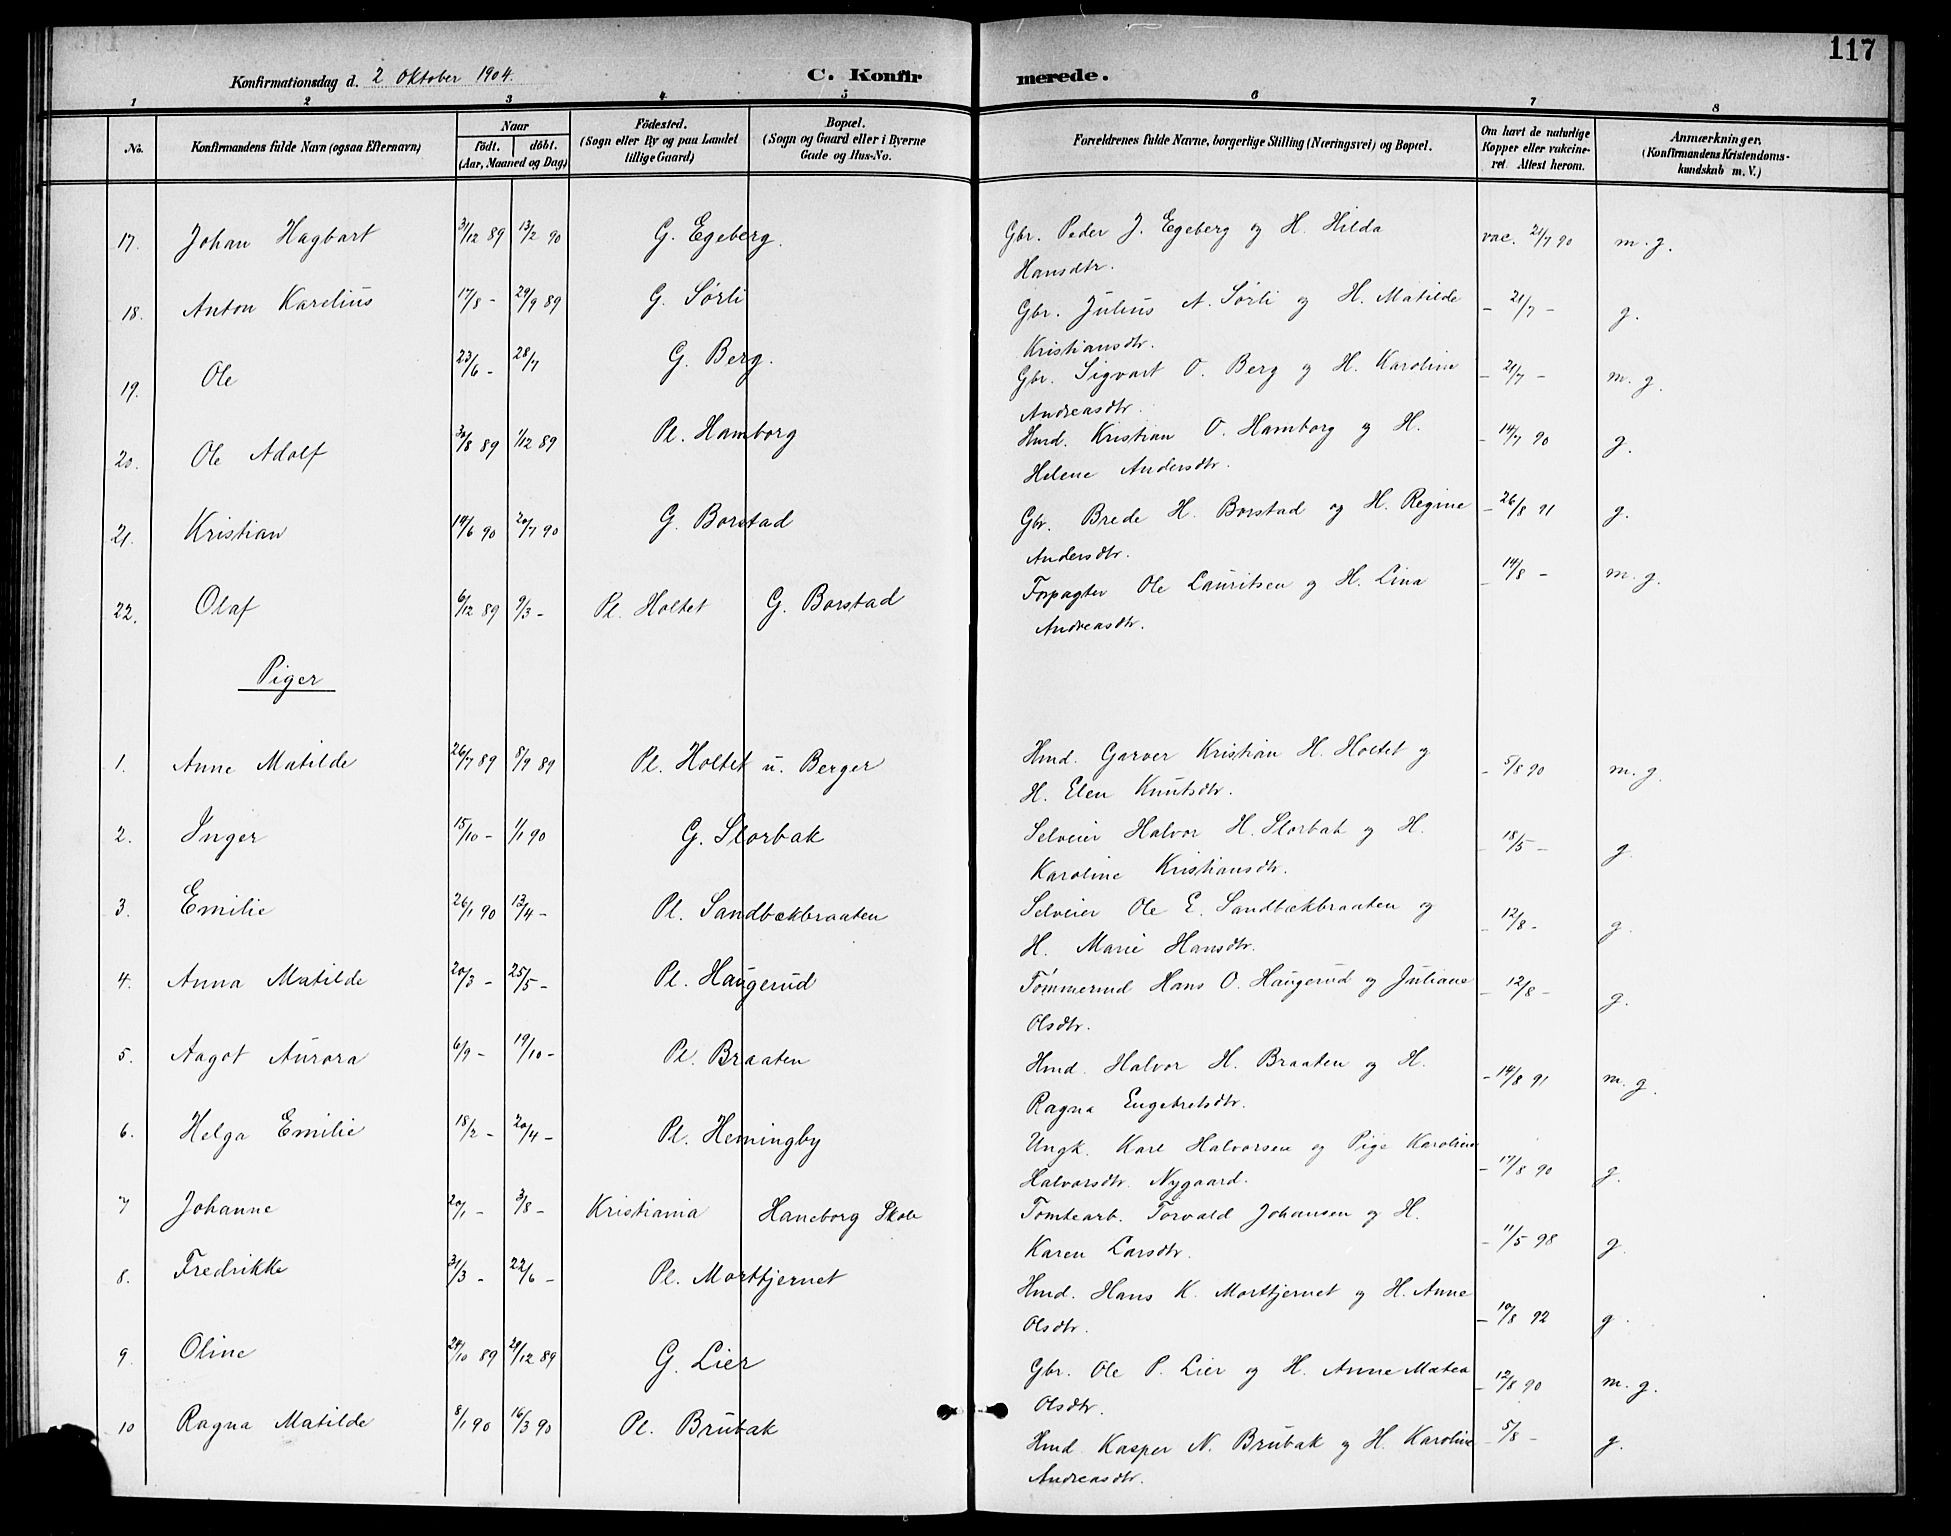 117
Konfirmationsdag d. 2 Oktober 1904. C. Konfirmerede.
1 2 3 4 5 6 7 8
No. Konfirmandens fulde Navn (ogsaa Efternavn) Naar født. døbt. (Aar, Maaned og Dag) Fødested. (Sogn eller By og paa Landet tillige Gaard) Bopæl. (Sogn og Gaard eller i Byerne Gade og Hus-No. Forældrenes fulde Navne, borgerlige Stilling (Næringsvei) og Bopæl. Om havt de naturlige Kopper eller vakcineret. Attest herom. Anmærkninger. (Konfirmandens Kristendomskundskab m. V.)
17. Johan Hagbart 31/12 89 13/2 90 G. Egeberg. Gbr. Peder J. Egeberg og H. Hilda vac. 21/7 90 m. g.
Hansdtr.
18. Anton Karelius 17/8 - 29/9 89 G. Sørli Gbr. Julius A. Sørli og H. Matilde - 21/7 - g.
Kristiansdtr.
19. Ole 23/6 - 28/7 G. Berg. Gbr. Sigvart O. Berg og H. Karoline - 21/7 - m. g.
Andreasdtr.
20. Ole Adolf 30/8 89 1/12 89 Pl. Hamborg Hmd. Kristian O. Hamborg og H. - 14/7 90 g.
Helene Andersdtr.
21. Kristian 14/6 90 20/7 90 G. Borstad Gbr. Brede H. Borstad og H. Regine - 26/8 91 g.
Andersdtr.
22. Olaf 6/12 89 9/3 - Pl. Holtet G. Borstad Forpagter Ole Lauritsen og H. Lina - 14/8 - m. g.
Andreasdtr.
Piger
1. Anne Matilde 26/7 89 8/9 89 Pl. Holtet u. Berger Hmd. Garver Kristian H. Holtet og - 5/8 90 m. g.
H. Elen Knutsdtr.
2. Inger 15/10 - 1/1 90 G. Slorbak Selveier Halvor H. Slorbak og H. - 18/5 - g.
Karoline Kristiansdtr.
3. Emilie 26/1 90 13/4 - Pl. Sandbækbraaten Selveier Ole E. Sandbækbraaten og - 12/8 - g.
H. Marie Hansdtr.
4. Anna Matilde 20/3 - 25/5 - Pl. Haugerud Tømmermd Hans O. Haugerud og Juliane - 12/8 - g.
Olsdtr.
5. Aagot Aurora 6/9 - 19/10 - Pl. Braaten Hmd. Halvor H. Braaten og H. - 14/8 91 m. g.
Ragna Engebretsdtr.
6. Helga Emilie 18/2 - 20/4 - Pl. Hemingby Ungk. Karl Halvorsen og Pige Karoline - 17/8 90 g.
Halvorsdtr. Nygaard.
7 Johanne 20/1 - 3/8 - Kristiania Haneborg Skole Tomtearb. Torvald Johansen og H. - 11/5 98 g.
Karen Larsdtr.
8. Fredrikke 31/3 - 22/6 - Pl. Morttjernet Hmd. Hans K. Morttjernet og H. Anne - 10/8 92 g.
Olsdtr.
9. Oline 24/10 89 29/12 89 G. Lier Gbr. Ole P. Lier og H. Anne Matea - 12/8 90 m. g.
Olsdtr.
10 Ragna Matilde 8/1 90 16/3 90 Pl. Brubak Hmd. Kasper N. Brubak og H. Karoline - 5/8 - g.
Andreasdtr.